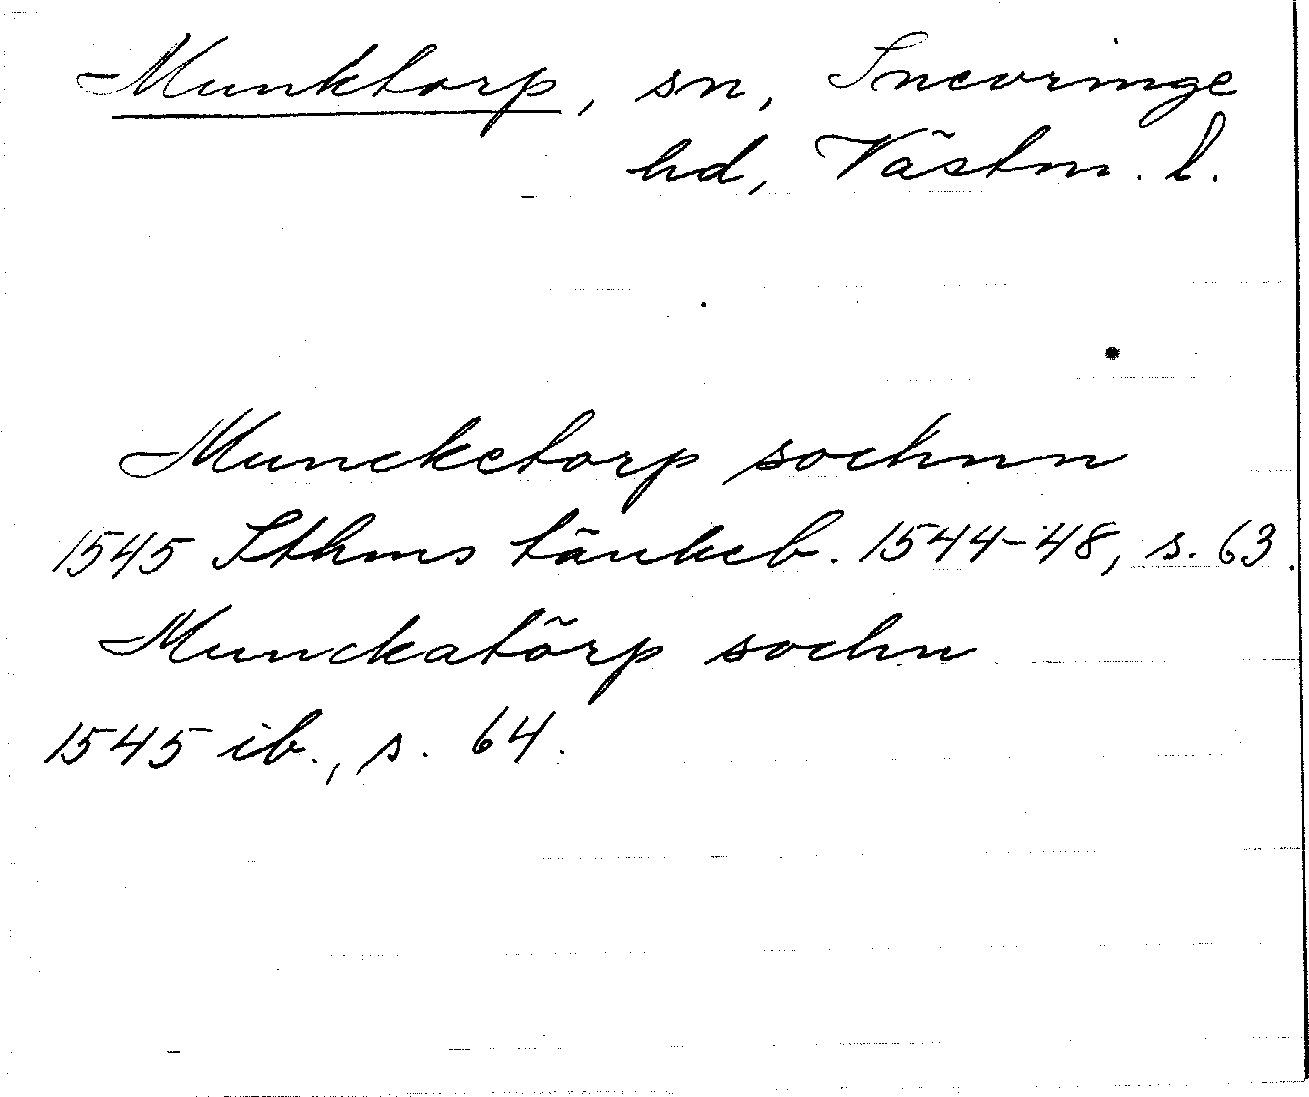 Munktorp, sn, Snevringe
hd, Västm. l.
Muncketorp sochnn
1545 Sthms tänkeb. 1544-48, s. 63.
Munckatörp sochn
1545 ib., s. 64.